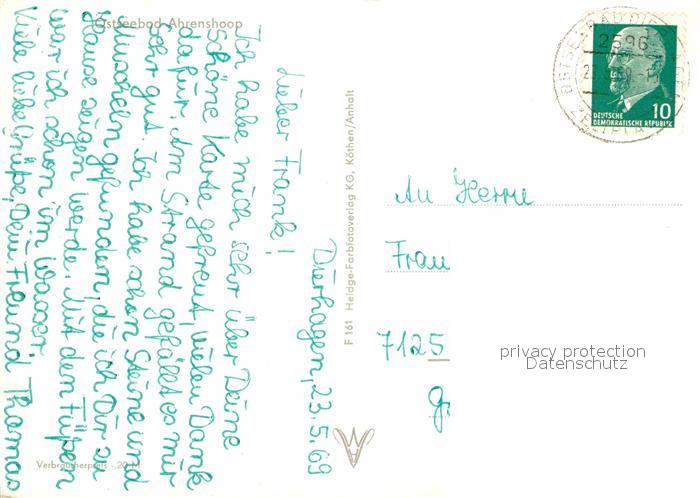 Ostseebad Ahrenshoop
Dierhagen, 23.5.69
Lieber Frank!
Ich habe mich sehr über Deine
schöne Karte gefreut, vielen Dank
dafür. Am Strand gefällt es mir
sehr gut. Ich habe schon Steine und
Muscheln gefunden, die ich Dir zu
Hause zeigen werde. Mit den Füßen
war ich schon im Wasser.
Viele liebe Grüße, Dein Freund Thomas
Verbraucherpreis -,20 M
F 161 Heldge-Farbfotoverlag KG, Köthen/Anhalt
2596
OSTSEEBAD DIERHAGEN
DEUTSCHE
DEMOKRATISCHE REPUBLIK
10
An Herrn
Fran
7125
privacy protection
Datenschutz